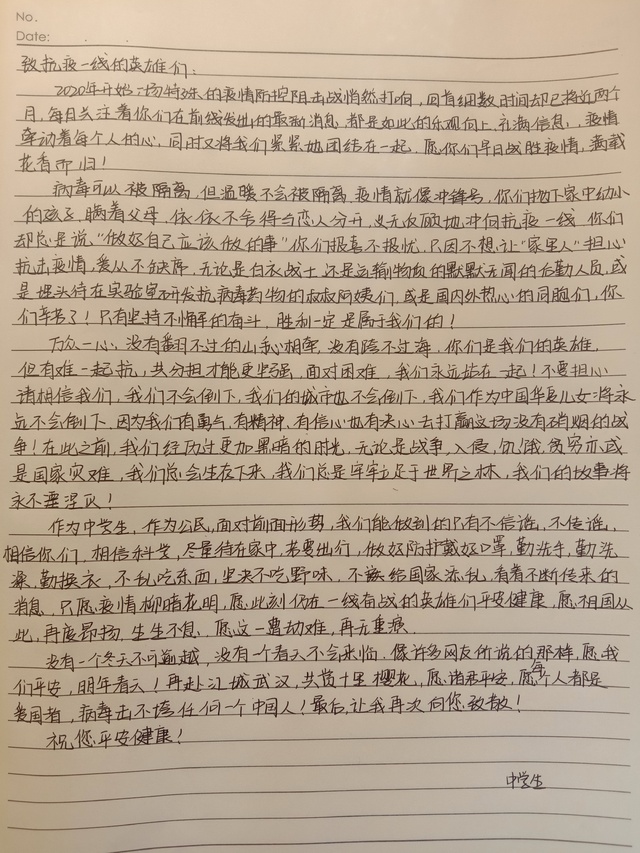 No.
Date:
致抗疫一线的英雄们:
2020年开始一场特殊的疫情防控阻击战悄然打响,回首细数时间却已将近两个
月,每日关注着你们在前线发出的最新消息,都是如此的乐观向上,充满信息,疫情
牵动着每个人的心,同时又将我们紧紧地团结在一起,愿你们早日战胜疫情,满载
花香而归!
病毒可以被隔离,但温暖不会被隔离,疫情就像冲锋号,你们抛下家中幼小
的孩子,瞒着父母,依依不舍得与恋人分开,义无反顾地冲向抗疫一线,你们
却总是说"做好自己应该做的事"你们报喜不报忧,只因不想让"家里人"担心
抗击疫情,爱从不缺席,无论是白衣战士,还是运输物资的默默无闻的后勤人员,或
是埋头待在实验室研发抗病毒药物的叔叔阿姨们,或是国内外热心的同胞们,你
们辛苦了!只有坚持不懈的奋斗,胜利一定是属于我们的!
万众一心,没有翻不过的山;心相牵,没有跨不过海,你们是我们的英雄,
但有难一起抗,共分担才能更坚强,面对困难,我们永远站在一起!不要担心
请相信我们,我们不会倒下,我们的城市也不会倒下,我们作为中国华夏儿女将永
远不会倒下,因为我们有勇气,有精神,有信心也有决心去打赢这场没有硝烟的战
争!在此之前,我们经历过更加黑暗的时光,无论是战争,入侵,饥饿,贫穷亦或
是国家灾难,我们总会生存下来,我们总是牢牢立足于世界之林,我们的故事将
永不湮灭!
作为中学生,作为公民,面对前面形势,我们能做到的只有不信谣,不传谣,
相信你们,相信科学,尽量待在家中,若要出行,做好防护戴好口罩,勤洗手,勤洗
澡,勤换衣,不乱吃东西,坚决不吃野味,不该给国家添乱,看着不断传来的
消息,只愿疫情柳暗花明,愿此刻仍在一线奋战的英雄们平安健康,愿祖国从
此,再度昂扬,生生不息,愿这一遭劫难,再无重演.
没有一个冬天不可逾越,没有一个春天不会来临,像许多网友所说的那样,愿我
们平安,明年春天!再赴江城武汉,共赏十里樱花,愿诸君平安,愿每个人都是
爱国者,病毒击不垮任何一个中国人!最后,让我再次向您致敬!
祝您平安健康!
中学生